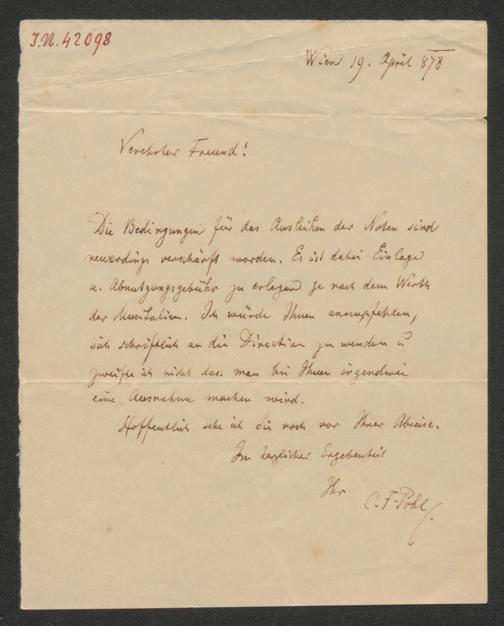 I.N. 42098
Wien 19. April 878
Verehrter Freund!
Die Bedingungen für das Ausleihen der Noten sind
neuerdings verschärft worden. Es ist dabei Einlage
u. Abnutzungsgebühr zu erlegen je nach dem Werth
der Musikalien. Ich würde Ihnen anempfehlen,
sich schriftlich an die Direction zu wenden u
zweifle ich nicht dass man bei Ihnen irgendwie
eine Ausnahme machen wird.
Hoffentlich sehe ich Sie noch vor Ihrer Abreise.
In herzlicher Ergebenheit
Ihr
C. F. Pohl